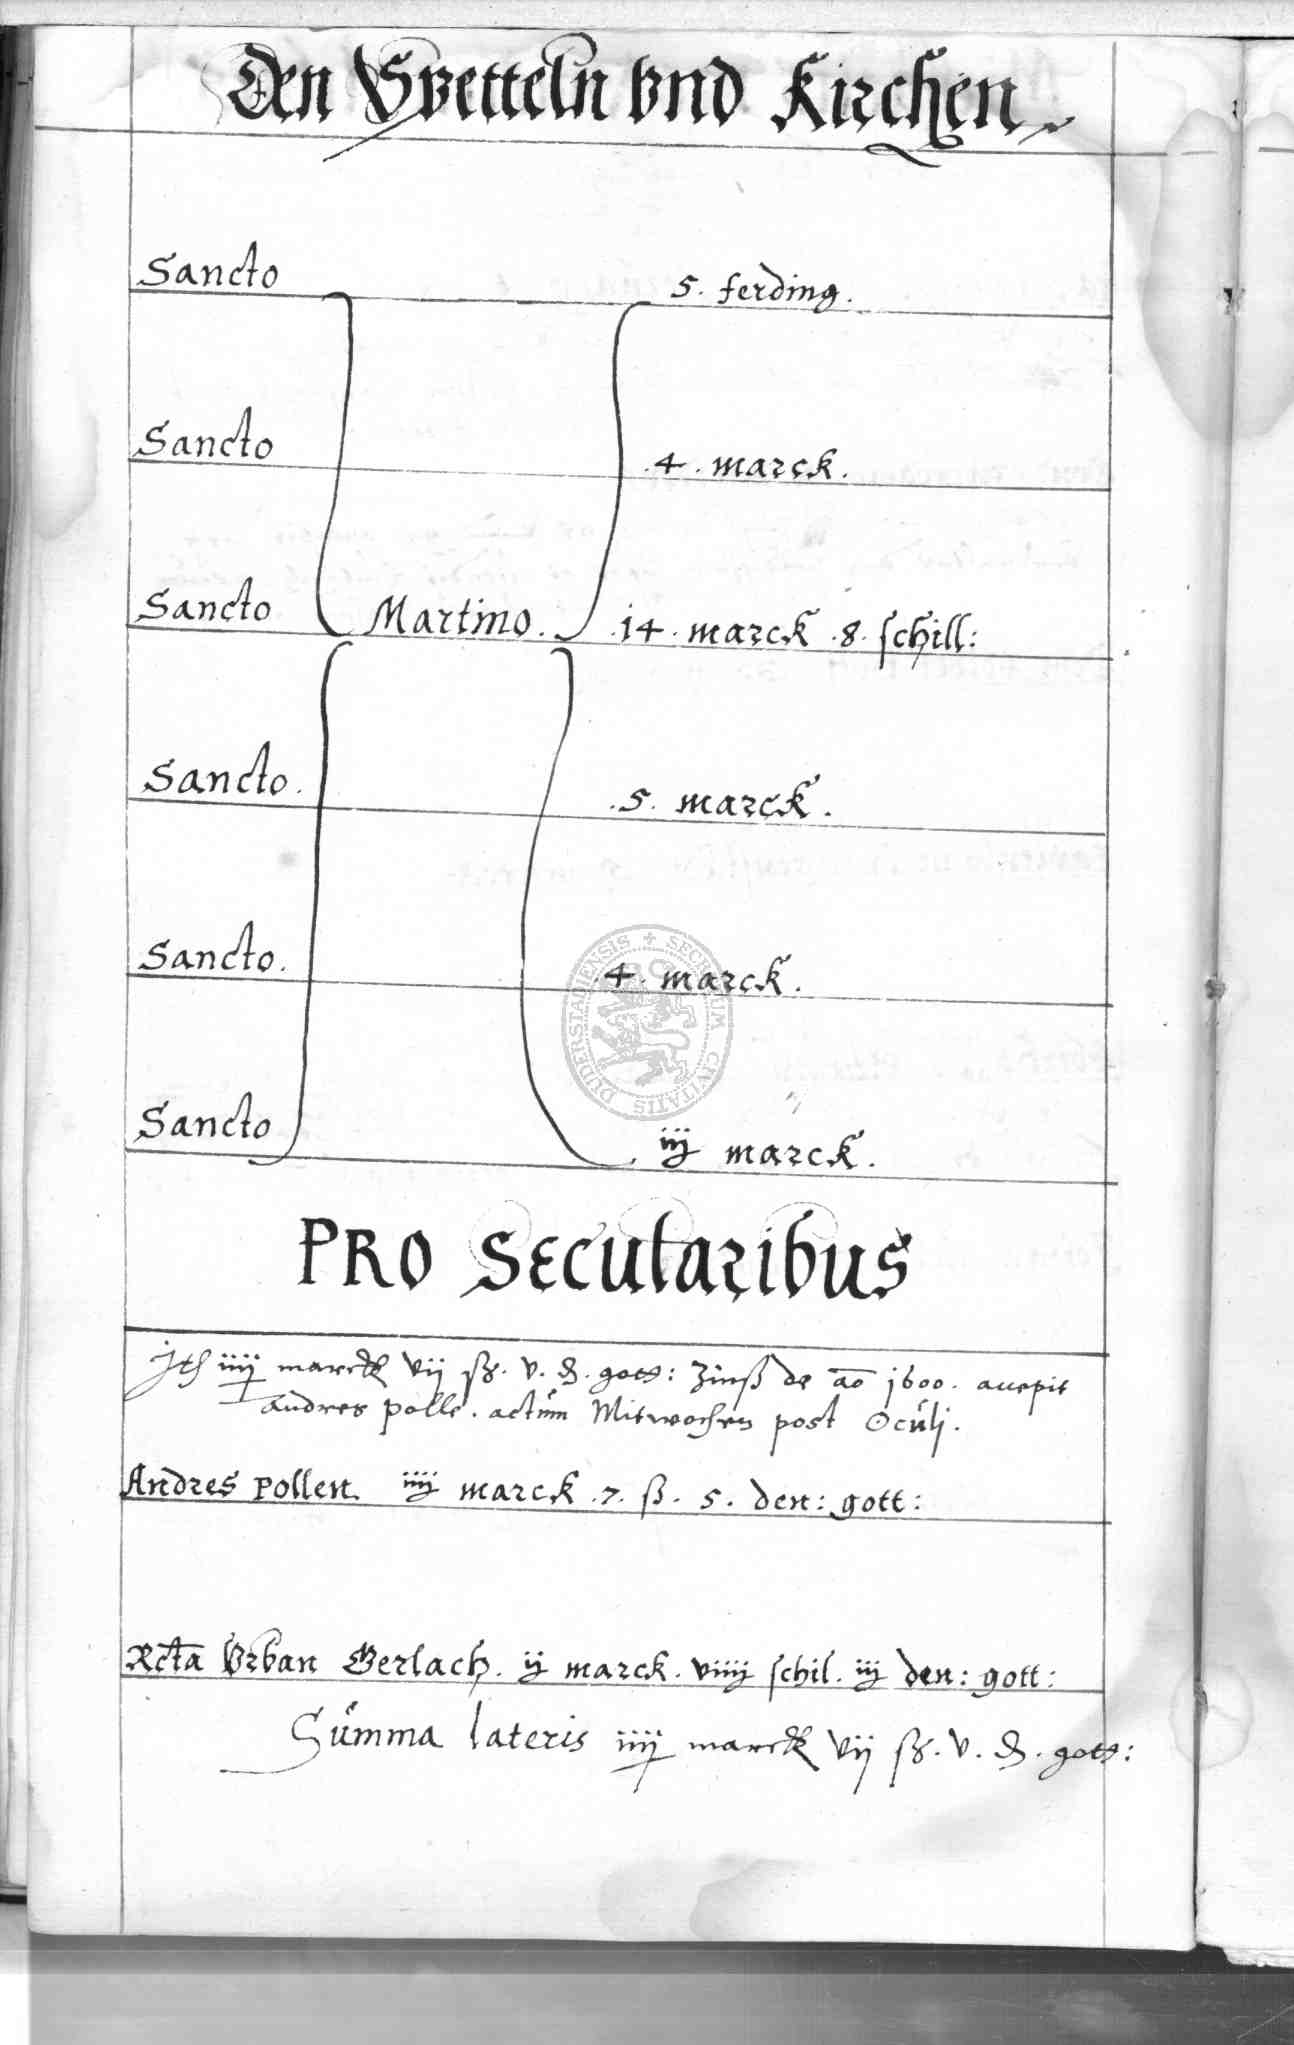 Den Spetteln vnd Kirchen
Sancto 5. ferding.
Sancto .4. marck.
Sancto Martino. .14. marck .8. schill:
Sancto. .5. marck.
Sancto. .4. marck.
Sancto iij marck.
PRO Secularibus
iiij marck vij ß. v. d. gott: Zinß de ao 1600. accepit
andres polle. actum Mitwochen post Oculi.
Andres Pollen iiij marck .7. ß. 5. den: gott:
Rcta Vrban Gerlach. ij marck. viiij schil. iij den: gott:
Summa lateris iiij marck vij ß. v. d. gott:
SECRETUM CIVITATIS DUDERSTADIENSIS